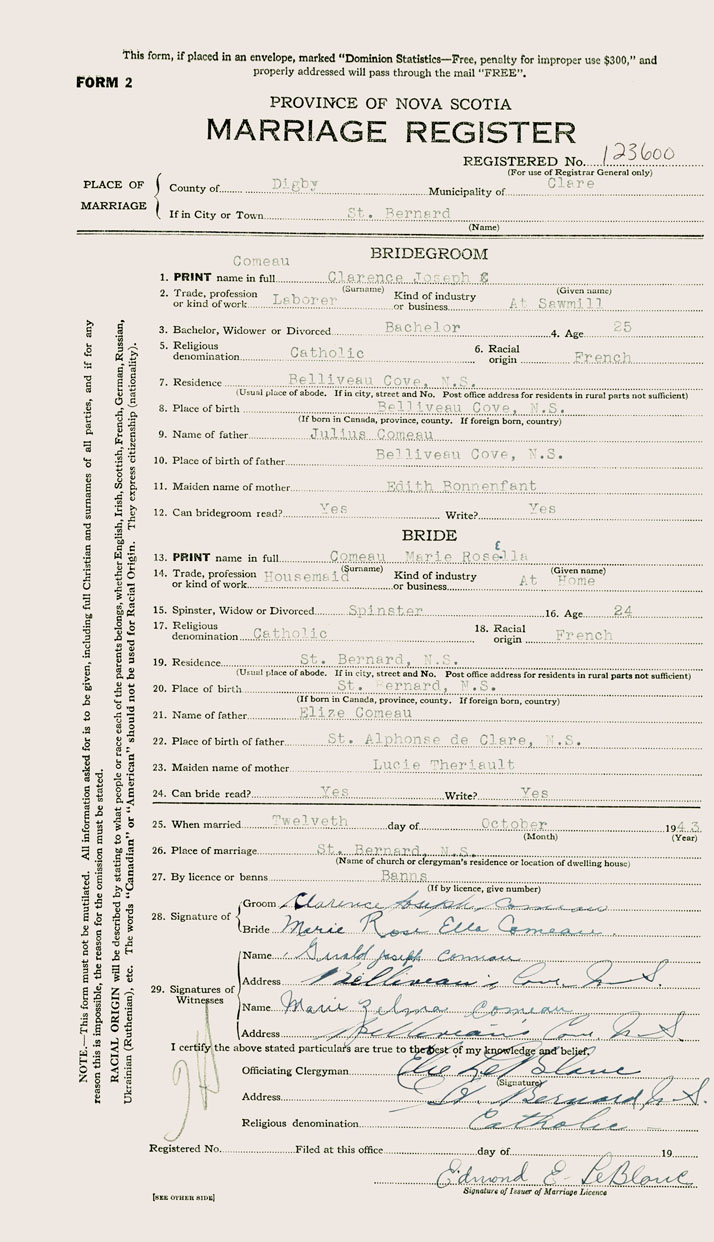 This form, if placed in an envelope, marked “Dominion Statistics—Free, penalty for improper use $300,” and
properly addressed will pass through the mail “FREE”.
FORM 2
PROVINCE OF NOVA SCOTIA
MARRIAGE REGISTER
REGISTERED No. 123600
(For use of Registrar General only)
PLACE OF MARRIAGE
County of Digby Municipality of Clare
If in City or Town St. Bernard
(Name)
BRIDEGROOM
Comeau
1. PRINT name in full Clarence Joseph
(Surname) (Given name)
2. Trade, profession or kind of work Laborer Kind of industry or business At Sawmill
3. Bachelor, Widower or Divorced Bachelor 4. Age 25
5. Religious denomination Catholic 6. Racial origin French
7. Residence Belliveau Cove, N.S.
(Usual place of abode. If in city, street and No. Post office address for residents in rural parts not sufficient)
8. Place of birth Belliveau Cove, N.S.
(If born in Canada, province, county. If foreign born, country)
9. Name of father Julius Comeau
10. Place of birth of father Belliveau Cove, N.S.
11. Maiden name of mother Edith Bonnenfant
12. Can bridegroom read? Yes Write? Yes
BRIDE
13. PRINT name in full Comeau Marie Rosella
E
(Surname) (Given name)
14. Trade, profession or kind of work Housemaid Kind of industry or business At Home
15. Spinster, Widow or Divorced Spinster 16. Age 24
17. Religious denomination Catholic 18. Racial origin French
19. Residence St. Bernard, N.S.
(Usual place of abode. If in city, street and No. Post office address for residents in rural parts not sufficient)
20. Place of birth St. Bernard, N.S.
(If born in Canada, province, county. If foreign born, country)
21. Name of father Elize Comeau
22. Place of birth of father St. Alphonse de Clare, N.S.
23. Maiden name of mother Lucie Theriault
24. Can bride read? Yes Write? Yes
25. When married Twelveth day of October 1943
(Month) (Year)
26. Place of marriage St. Bernard, N.S.
(Name of church or clergyman's residence or location of dwelling house)
27. By licence or banns Banns
(If by licence, give number)
28. Signature of
Groom Clarence Joseph Comeau
Bride Marie Rose Ella Comeau.
29. Signatures of Witnesses
Name Gerald Joseph Comeau
Address Belliveau's Cove, N.S.
Name Marie Zelma Comeau
Address Belliveau's Cove N.S
I certify the above stated particulars are true to the best of my knowledge and belief,
Officiating Clergyman Elie LeBlanc
(Signature)
Address St. Bernard, N.S.
Religious denomination Catholic
Registered No. Filed at this office day of 19
Edmond E. LeBlanc
Signature of Issuer of Marriage Licence
[SEE OTHER SIDE]
NOTE.—This form must not be mutilated. All information asked for is to be given, including full Christian and surnames of all parties, and if for any
reason this is impossible, the reason for the omission must be stated.
RACIAL ORIGIN will be described by stating to what people or race each of the parents belongs, whether English, Irish, Scottish, French, German, Russian,
Ukrainian (Ruthenian), etc. The words “Canadian” or “American” should not be used for Racial Origin. They express citizenship (nationality).